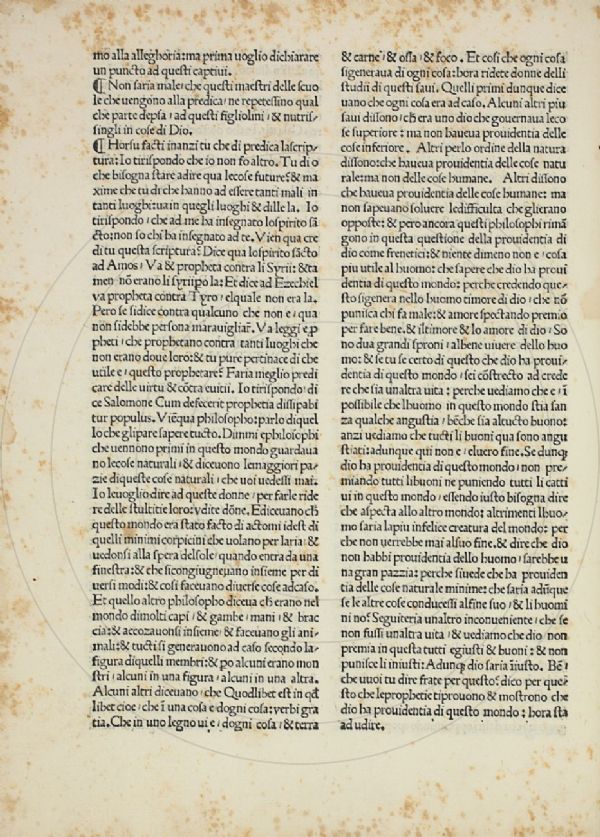 mo alla alleghoria: ma prima uoglio dichiarare
un puncto ad questi captiui.
¶ Non faria male, che questi maestri delle scuo
le che uengono alla predica, ne repetessino qual
che parte depsa, ad questi figliolini, & nutris/
singli in cose di Dio.
¶ Horsu facti inanzi tu che di predica la scrip/
tura: Io tirispondo che io non fo altro. Tu di o
che bisogna stare adire qua le cose future? & ma
xime che tu di che hanno ad essere tanti mali in
tanti luoghi: ua in quegli luoghi & dille la. Io
tirispondo, che ad me ha insegnato lo spirito sā
cto: non so chi ha insegnato ad te. Vien qua cre
di tu questa scriptura? Dice qua lo spirito sācto
ad Amos, Va & propheta contra li Syrii: & ta
men nō erano li syrii po la: Et dice ad Ezechiel
va propheta contra Tyro, elquale non era la.
Pero se si dice contra qualcuno che non e, qua
non sidebbe persona marauigliar. Va leggi e p
pheti, che prophetano contra tanti luoghi che
non erano doue loro: & tu pure pertinace di che
utile e, questo prophetare? Faria meglio predi
care delle uirtu & cōtra euitii. Io tirispondo: di
ce Salomone Cum defecerit prophetia dissipabi
tur populus. Viē qua philosopho: parlo di quel
lo che glipare sapere tucto. Dimmi ephilosophi
che uennono primi in questo mondo guardaua
no lecose naturali, & diceuono lemaggiori pa/
zie di queste cose naturali, che uoi uedessi mai.
Io leuoglio dire ad queste donne, per farle ride
re delle stultitie loro: udite dōne. Ediceuano ch
questo mondo era stato facto di actomi idest di
quelli minimi corpicini che uolano per laria, &
uedonsi alla spera delsole, quando entra da una
finestra: & che si congiugneuano insieme per di
uersi modi: & cosi faceuano diuerse cose adcaso.
Et quello altro philosopho diceua ch erano nel
mondo dimolti capi, & gambe, mani, & brac
cia: & accozauonsi insieme, & faceuano gli ani/
mali: & tucti si generauono ad caso secondo la/
figura di quelli membri: & po alcuni erano mon
stri, alcuni in una figura, alcuni in una altra.
Alcuni altri diceuano, che Quodlibet est in qd
libet cioe, che ī una cosa e dogni cosa: uerbi gra
tia. Che in uno legno ui e, dogni cosa, & terra
& carne, & ossa, & foco. Et cosi che ogni cosa
sigeneraua di ogni cosa: hora ridete donne delli
studii di questi saui. Quelli primi dunque dice
uano che ogni cosa era ad caso. Alcuni altri piu
saui dissono, ch era uno dio che gouernaua leco
se superiore: ma non haueua prouidentia delle
cose inferiore. Altri perlo ordine della natura
dissono: che haueua prouidentia delle cose natu
rale: ma non delle cose humane. Altri dissono
che haueua prouidentia delle cose humane: ma
non sapeuano soluere ledifficulta che glierano
opposte: & pero ancora questi philosophi rimā
gono in questa questione della prouidentia di
dio come frenetici: & niente dimeno non e, cosa
piu utile al huomo: che sapere che dio ha proui
dentia di questo mondo: perche credendo que/
sto sigenera nello huomo timore di dio, che nō
punisca chi fa male: & amore spectando premio
per fare bene. & iltimore & lo amore di dio, So
no dua grandi sproni, albene uiuere dello huo
mo: & se tu se certo di questo che dio ha proui/
dentia di questo mondo, sei cōstrecto ad crede
re che sia unaltra uita: perche uediamo che e, ī
possibile che lhuomo in questo mondo stia san
za qualche angustia, bēche sia alsucto buono:
anzi uediamo che tucti li buoni qua sono angu
stiati: adunque qui non e, eluero fine. Se dunq
dio ha prouidentia di questo mondo, non pre/
miando tutti libuoni ne puniendo tutti li catti
ui in questo mondo, essendo iusto bisogna dire
che aspecta allo altro mondo: altrimenti lhuo/
mo saria lapiu infelice creatura del mondo: per
che non uerrebbe mai alsuo fine. & dire che dio
non habbi prouidentia dello huomo, sarebbe u
na gran pazzia: perche siuede che ha prouiden
tia delle cose naturale minime: che saria adūque
se le altre cose conducessi alfine suo, & li huomi
ni no? Seguiteria unaltro inconueniente, che se
non fussi unaltra uita, & uediamo che dio non
premia in questa tutti egiusti & buoni: & non
punisce li iniusti: Adunq dio saria īiusto. Bē,
che uuoi tu dire frate per questo? dico per que/
sto che leprophetie tiprouono & mostrono che
dio ha prouidentia di questo mondo: hora sta
ad udire.